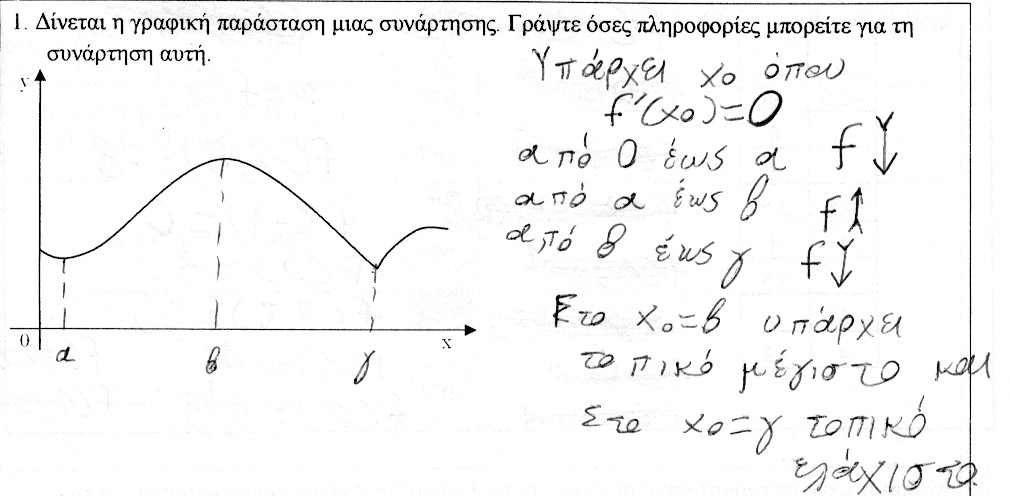 1. Δίνεται η γραφική παράσταση μιας συνάρτησης. Γράψτε όσες πληροφορίες μπορείτε για τη
συνάρτηση αυτή.
y
0
x
α
β
γ
Υπάρχει xο όπου
f'(xο)=0
από 0 έως α f↓
από α έως β f↑
από β έως γ f↓
Στο xο=β υπάρχει
τοπικό μέγιστο και
Στο xο=γ τοπικό
ελάχιστο.